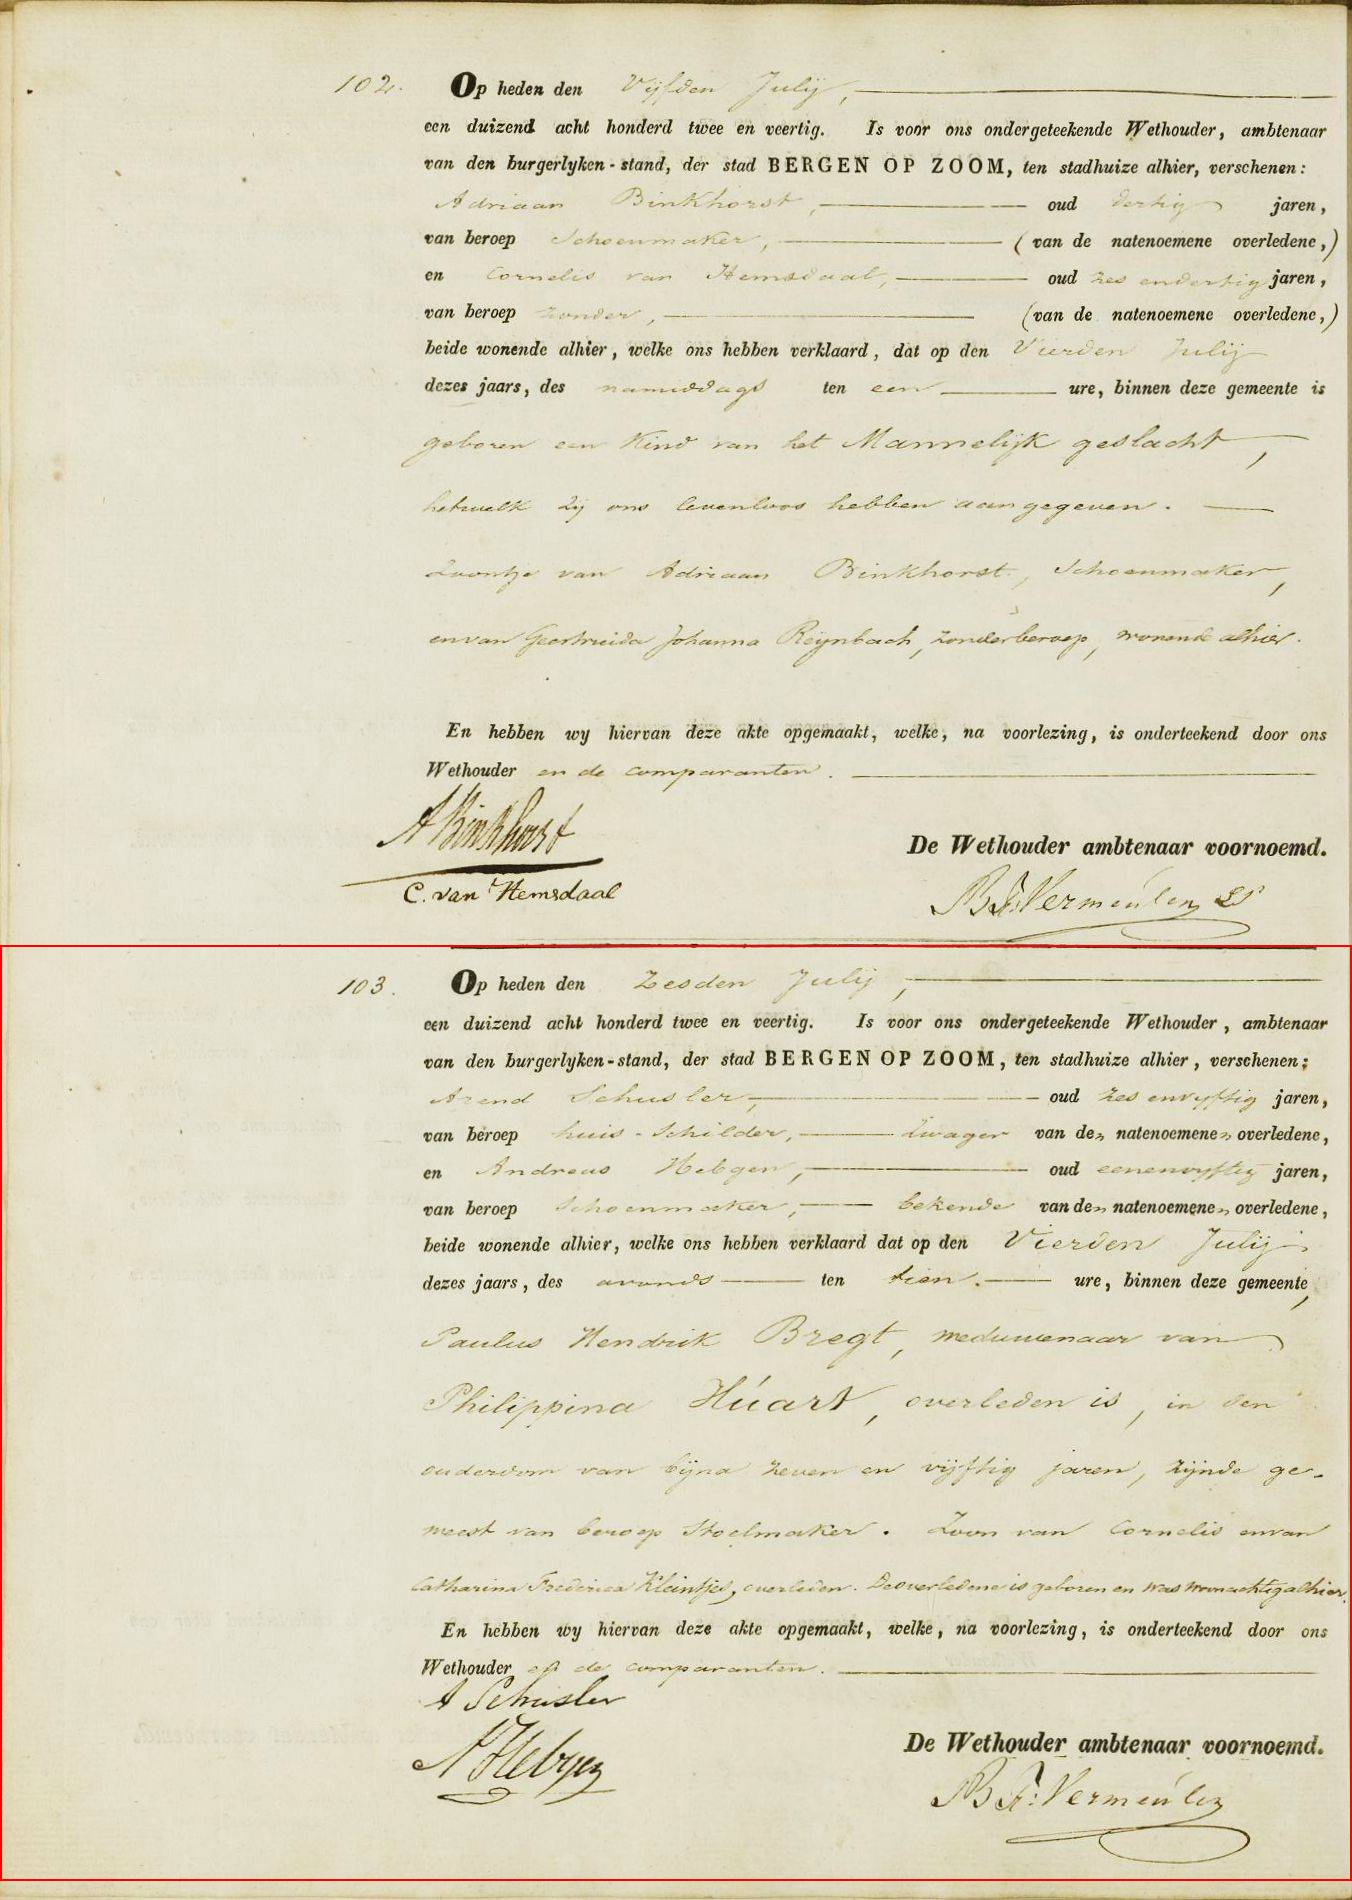 102. Op heden den Vijfden Julij,
een duizend acht honderd twee en veertig. Is voor ons ondergeteekende Wethouder, ambtenaar
van den burgerlyken-stand, der stad BERGEN OP ZOOM, ten stadhuize alhier, verschenen:
Adriaan Binkhorst, oud dertig jaren,
van beroep Schoenmaker, (van de natenoemene overledene,)
en Cornelis van Hemsdaal, oud zes endertig jaren,
van beroep zonder, (van de natenoemene overledene,)
beide wonende alhier, welke ons hebben verklaard, dat op den Vierden Julij
dezes jaars, des namiddags ten een ure, binnen deze gemeente is
geboren een Kind van het Mannelijk geslacht,
hetwelk zij ons levenloos hebben aangegeven.
Zoontje van Adriaan Binkhorst, Schoenmaker,
en van Geertruida Johanna Reijnbach, zonder beroep, wonende alhier.
En hebben wy hiervan deze akte opgemaakt, welke, na voorlezing, is onderteekend door ons
Wethouder en de comparanten.
A Binkhorst
De Wethouder ambtenaar voornoemd.
C. van Hemsdaal
B. F: Vermeulen
103. Op heden den Zesden Julij,
een duizend acht honderd twee en veertig. Is voor ons ondergeteekende Wethouder, ambtenaar
van den burgerlyken-stand, der stad BERGEN OP ZOOM, ten stadhuize alhier, verschenen;
Arend Schusler, oud zes envyftig jaren,
van beroep huis-Schilder, Zwager van den natenoemenen overledene,
en Andreas Hebgen, oud eenenvyftig jaren,
van beroep Schoenmaker, bekende van den natenoemenen overledene,
beide wonende alhier, welke ons hebben verklaard dat op den Vierden Julij
dezes jaars, des avonds ten tien. ure, binnen deze gemeente,
Paulus Hendrik Bregt, weduwenaar van
Philippina Húart, overleden is, in den
ouderdom van bijna zeven en vijftig jaren, zijnde ge-
weest van beroep Stoelmaker. Zoon van Cornelis en van
Catharina Frederica Kleintjes, overleden. De overledene is geboren en was woonachtig alhier.
En hebben wy hiervan deze akte opgemaakt, welke, na voorlezing, is onderteekend door ons
Wethouder en de comparanten.
A Schusler
De Wethouder ambtenaar voornoemd.
A Hebgen
B. F: Vermeulen